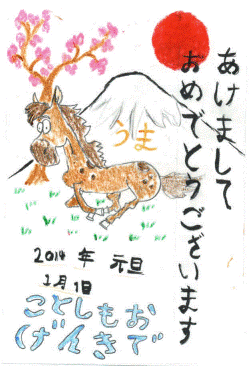 あけまして
おめでとうございます
うま
2014年 元旦
1月1日
ことしもお
げんきで